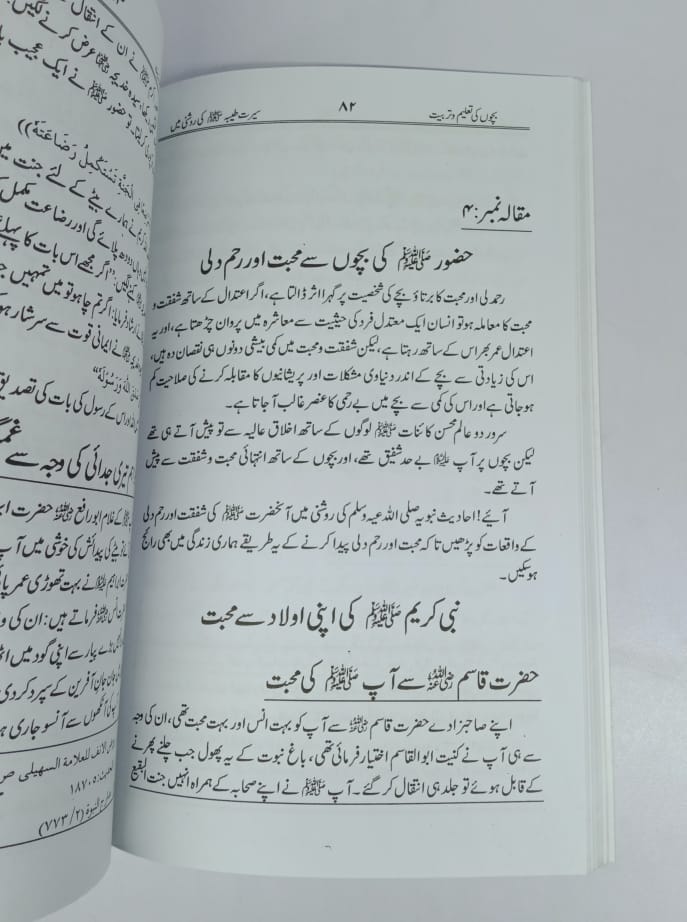 بچوں کی تعلیم و تربیت
۸۲
سیرت طیبہ ﷺ کی روشنی میں
مقالہ نمبر: ۴
حضور ﷺ کی بچوں سے محبت اور رحم دلی
رحمدلی اور محبت کا برتاؤ بچے کی شخصیت پر گہرا اثر ڈالتا ہے، اگر اعتدال کے ساتھ شفقت و
محبت کا معاملہ ہو تو انسان ایک معتدل فرد کی حیثیت سے معاشرہ میں پروان چڑھتا ہے، اور یہ
اعتدال عمر بھر اس کے ساتھ رہتا ہے، لیکن شفقت و محبت میں کمی بیشی دونوں ہی نقصان دہ ہیں،
اس کی زیادتی سے بچے کے اندر دنیاوی مشکلات اور پریشانیوں کا مقابلہ کرنے کی صلاحیت کم
ہو جاتی ہے اور اس کی کمی سے بچے میں بے رحمی کا عنصر غالب آ جاتا ہے۔
سرور دو عالم محسن کائنات ﷺ لوگوں کے ساتھ اخلاق عالیہ سے تو پیش آتے ہی تھے
لیکن بچوں پر آپ ﷺ بے حد شفیق تھے، اور بچوں کے ساتھ انتہائی محبت و شفقت سے پیش
آتے تھے۔
آئیے! احادیث نبویہ صلی اللہ علیہ وسلم کی روشنی میں آنحضرت ﷺ کی شفقت اور رحم دلی
کے واقعات کو پڑھیں تاکہ محبت اور رحم دلی پیدا کرنے کے یہ طریقے ہماری زندگی میں بھی رائج
ہو سکیں۔
نبی کریم ﷺ کی اپنی اولاد سے محبت
حضرت قاسم رضی اللہ عنہ سے آپ ﷺ کی محبت
اپنے صاحبزادے حضرت قاسم رضی اللہ عنہ سے آپ کو بہت انس اور بہت محبت تھی، ان کی وجہ
سے ہی آپ نے کنیت ابوالقاسم اختیار فرمائی تھی، باغ نبوت کے یہ پھول جب چلنے پھرنے
کے قابل ہوئے تو جلد ہی انتقال کر گئے۔ آپ ﷺ نے اپنے صحابہ کے ہمراہ انہیں جنت البقیع
نے ان کے انتقال
عرض کرنے لگیں
حضور ﷺ نے ایک عجیب
الجنة تستكمل رضاعته))
بیٹے کے لئے جنت میں
دودھ پلائے گی اور رضاعت مکمل
اگر مجھے اس بات کا پہلے
فرمایا: اگر تم چاہو تو میں تمہیں
نے ایمانی قوت سے سرشار ہو
الله ورسوله"
اور اس کے رسول کی بات کی تصدیق
تیری جدائی کی وجہ سے
کے غلام ابورافع رضی اللہ عنہ حضرت
بیٹے کی پیدائش کی خوشی میں آپ
نے بہت تھوڑی عمر پائی
فرماتے ہیں: ان کی
پیار سے اپنی گود میں
جان آفرین کے سپرد کردی
آنکھوں سے آنسو جاری
الانف للعلامة السهيلي ص
۱۸۷۰۵
النبوة (۷۷۳/۲)